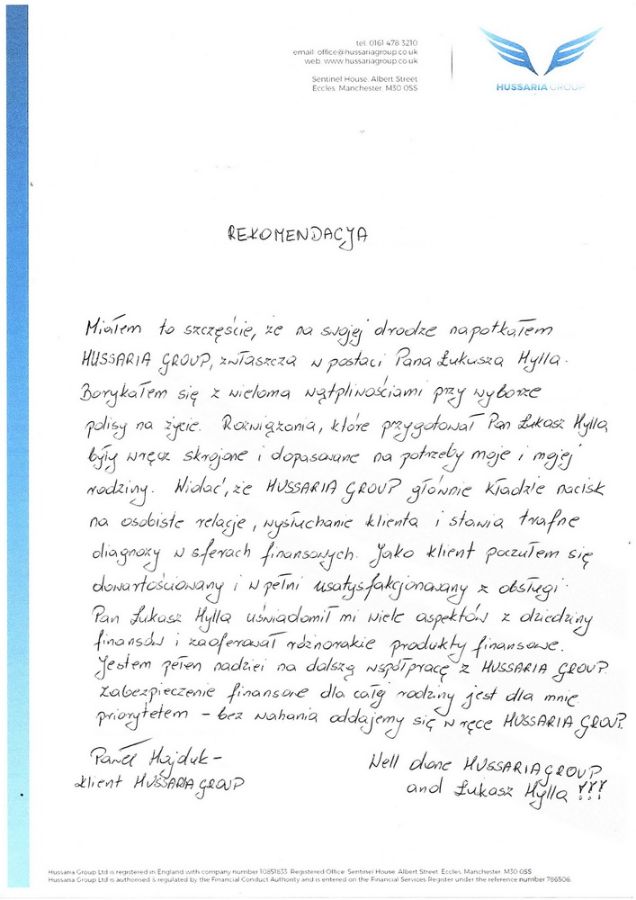 tel. 0161 478 3210
email: office@hussariagroup.co.uk
web: www.hussariagroup.co.uk
Sentinel House, Albert Street
Eccles, Manchester, M30 0SS
HUSSARIA GROUP
REKOMENDACJA
Miałem to szczęście, że na swojej drodze napotkałem
HUSSARIA GROUP, zwłaszcza w postaci Pana Łukasza Hylla.
Borykałem się z wieloma wątpliwościami przy wyborze
polisy na życie. Rozwiązania, które przygotował Pan Łukasz Hylla,
były wręcz skrojone i dopasowane na potrzeby moje i mojej
rodziny. Widać, że HUSSARIA GROUP głównie kładzie nacisk
na osobiste relacje, wysłuchanie klienta i stawia trafne
diagnozy w sferach finansowych. Jako klient poczułem się
dowartościowany i w pełni usatysfakcjonowany z obsługi.
Pan Łukasz Hylla uświadomił mi wiele aspektów z dziedziny
finansów i zaoferował różnorakie produkty finansowe.
Jestem pełen nadziei na dalszą współpracę z HUSSARIA GROUP.
Zabezpieczenie finansowe dla całej rodziny jest dla mnie
priorytetem – bez wahania oddajemy się w ręce HUSSARIA GROUP.
Paweł Hajduk –
klient HUSSARIA GROUP
Well done HUSSARIA GROUP
and Łukasz Hylla !!!
Hussaria Group Ltd is registered in England with company number 10851633. Registered Office: Sentinel House, Albert Street, Eccles, Manchester, M30 0SS
Hussaria Group Ltd is authorised & regulated by the Financial Conduct Authority and is entered on the Financial Services Register under the reference number 786506.